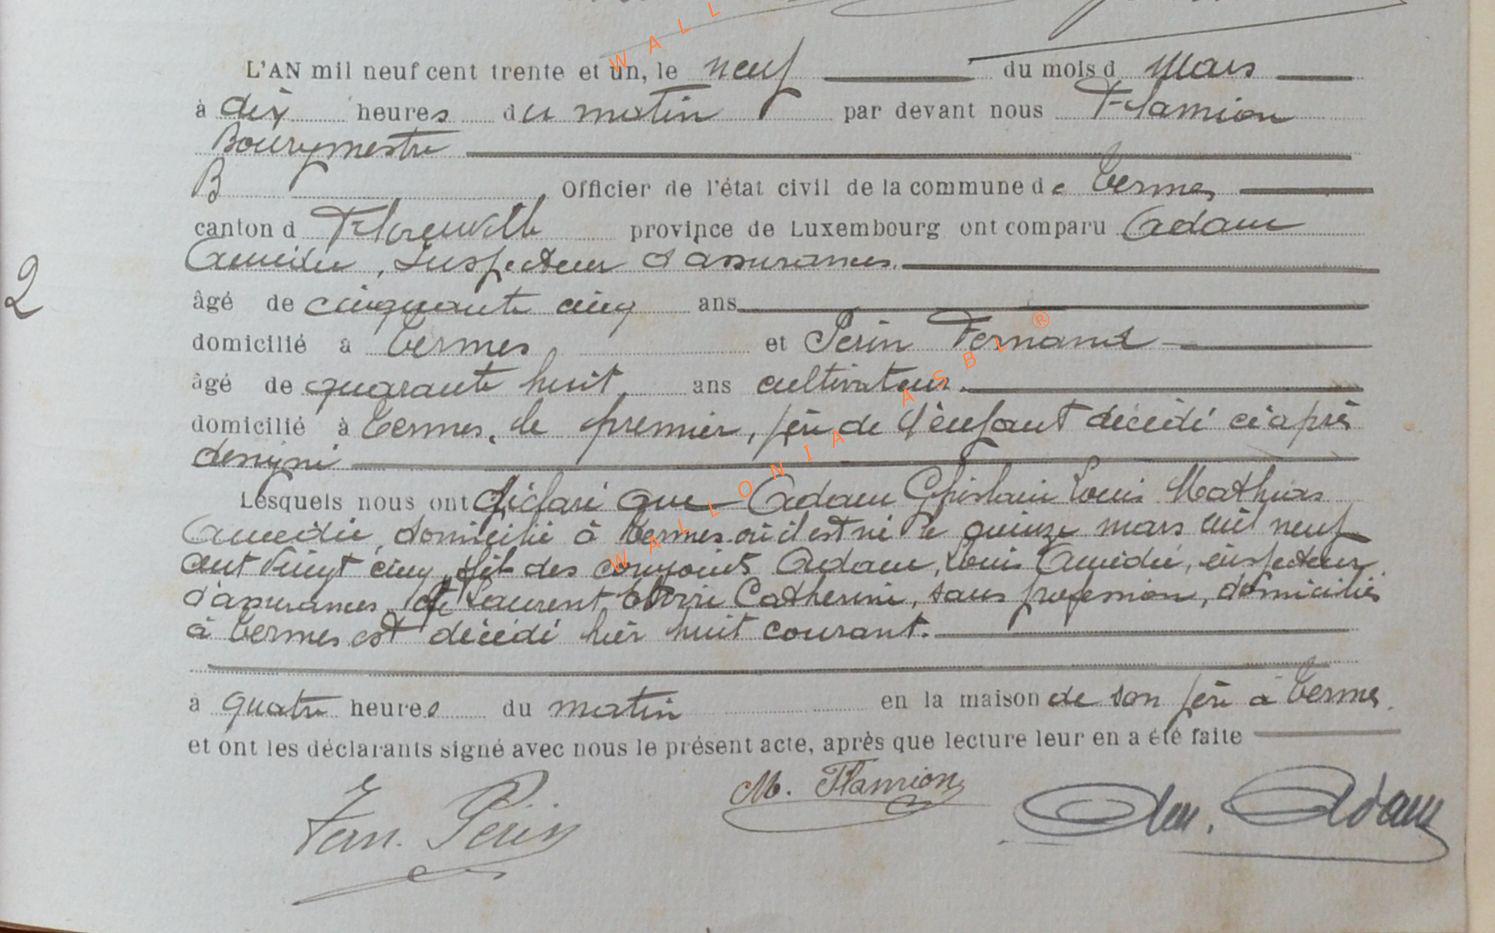 L'AN mil neuf cent trente et un, le neuf du mois d Mars
à dix heures du matin par devant nous Flamion
Bourgmestre
B Officier de l'état civil de la commune de Termes
canton d Florenville province de Luxembourg ont comparu Adam
Amédée, Inspecteur d'assurances.
âgé de cinquante cinq ans
2
domicilié à Termes et Perin Fernand
âgé de quarante huit ans cultivateur.
domicilié à Termes, le premier, père de l'enfant décédé ci après
désigné
Lesquels nous ont déclaré que Adam Ghislain Louis Mathias
Amédée, domicilié à Termes où il est né le quinze mars mil neuf
cent vingt cinq, fils des conjoints Adam, Louis Amédée, inspecteur
d'assurances, et Laurent Catherine, sans profession, domiciliés
à Termes est décédé hier huit courant.
à quatre heures du matin en la maison de son père à Termes.
et ont les déclarants signé avec nous le présent acte, après que lecture leur en a été faite
Fern. Périn M. Flamion Am. Adam
WALLONIA ASBL ®
WALL